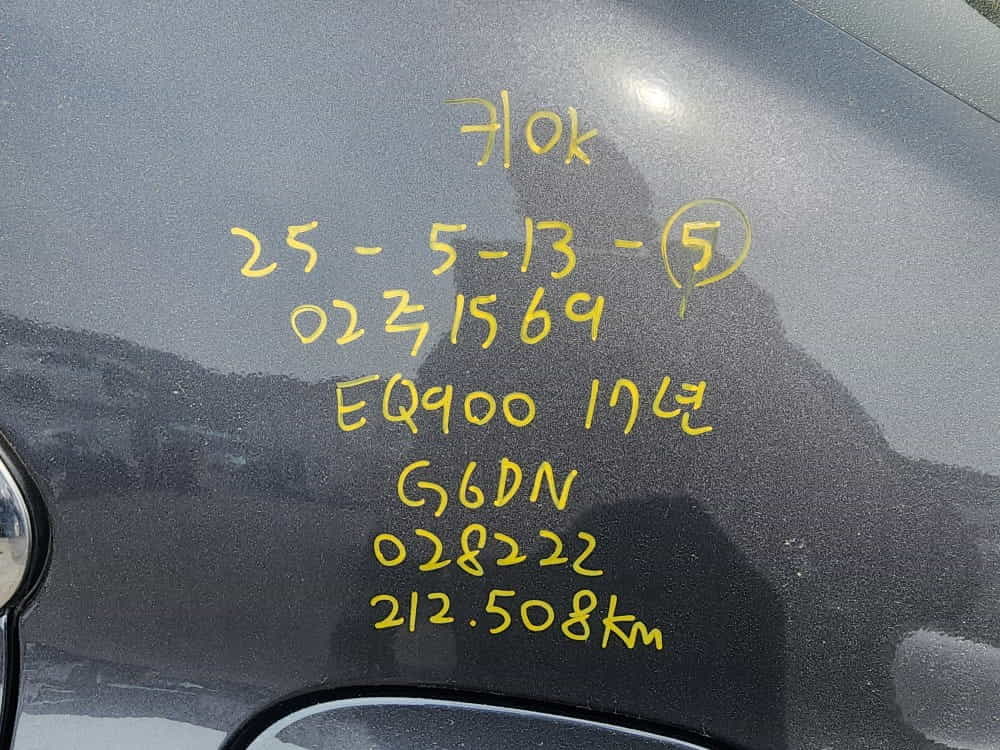 키OK
25-5-13-⑤
02주1569
EQ900 17년
G6DN
028222
212.508km